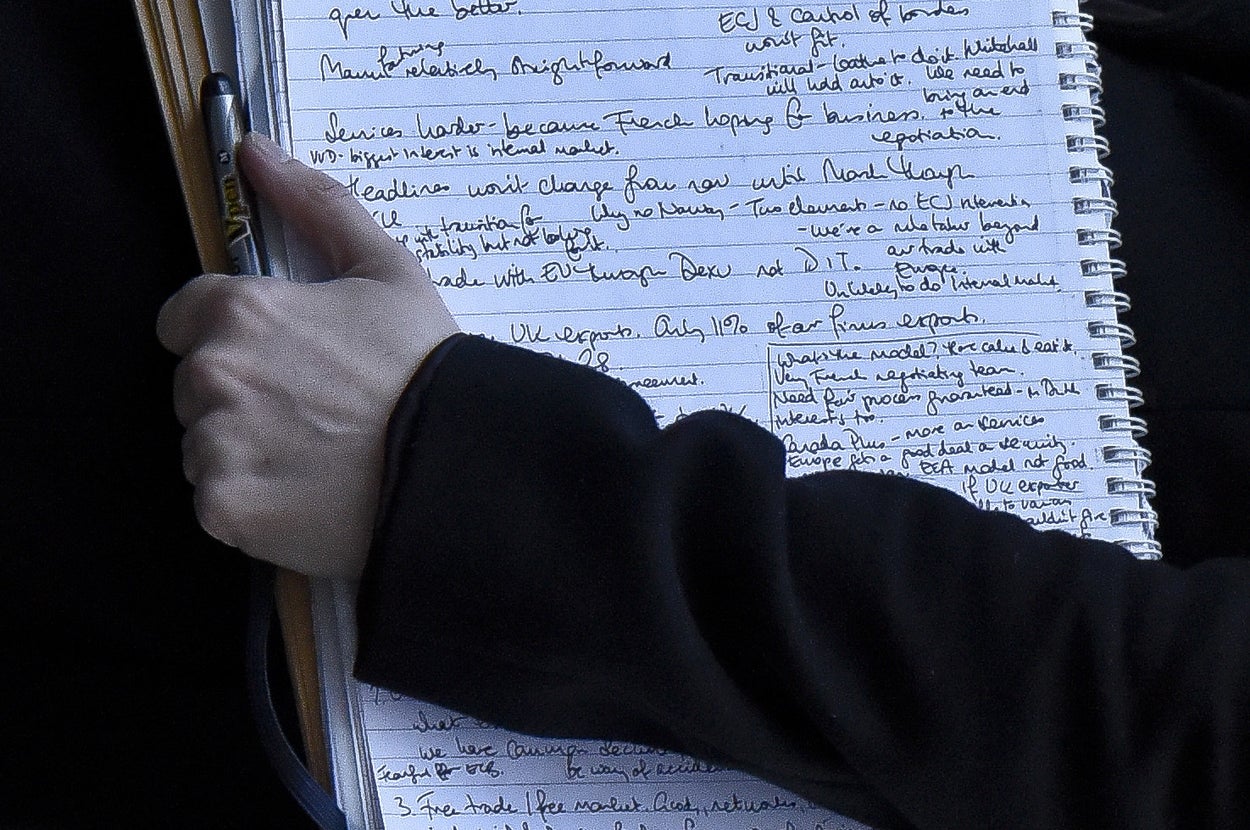 quer the better.
ECJ & Control of borders
won't fit.
Manufacturing relatively straightforward
Transitional - loathe to do it. Whitehall
will hold onto it. We need to
bring an end
to the
negotiation.
Services harder - because French hoping for business.
VVD - biggest interest is internal market.
Headlines won't change from now until March though
Why no Norway - Two elements - no ECJ intervention
with transition for
stability but not looking
for it.
- we're a rule taker beyond
our trade with
Europe.
trade with EU though Dexu not DIT.
Unlikely to do internal market.
UK exports. Only 11% of our firms exports.
28.
agreement.
What's the model? Have cake & eat it.
Very French negotiating team.
Need fair process guaranteed - in Dutch
interests too.
Canada Plus - more on services
Europe gets a good deal on security.
EEA model not good.
If UK exporter
to various
wouldn't give
what
We have common
by way of
Fearful for ECB.
3. Free trade / free market. networks
Vpen